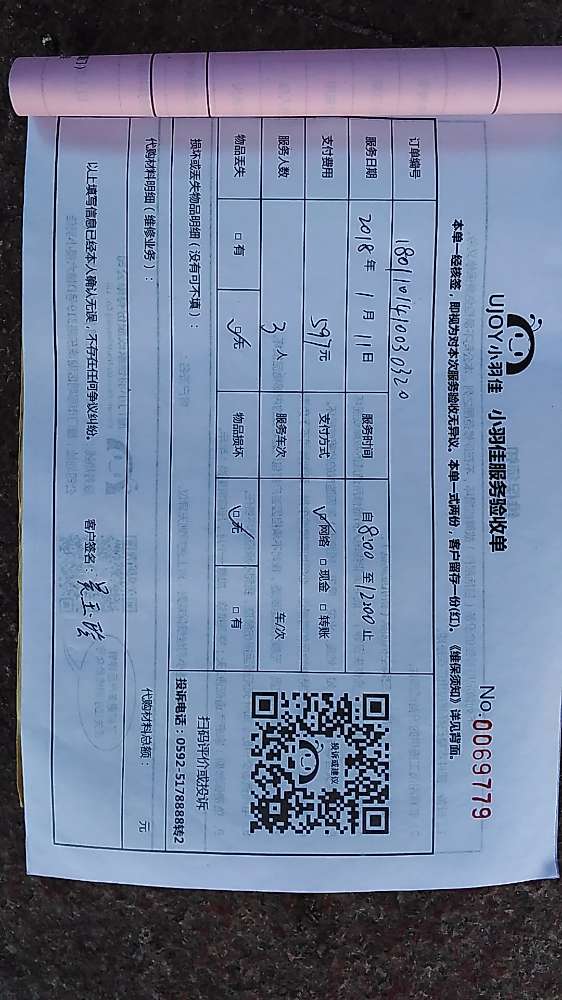 UJOY小羽佳 小羽佳服务验收单
No:0069779
本单一经核签，即视为对本次服务验收无异议。本单一式两份，客户留存一份(红)。《维保须知》详见背面。
订单编号 18011014100030320
服务日期 2018年1月11日 服务时间 自8:00至12:00止
支付费用 597元 支付方式 ☑网络 □现金 □转账
服务人数 3人 服务车次 车/次
物品丢失 □有 ☑无 物品损坏 ☑无 □有
投诉或建议
扫码评价或投诉
投诉电话：0592-5178888转2
损坏或丢失物品明细（没有可不填）：
代购材料明细（维修业务）： 代购材料总额： 元
以上填写信息已经本人确认无误，不存在任何争议纠纷。 客户签名：吴玉珍